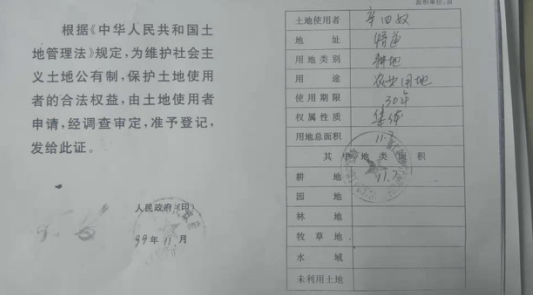 根据《中华人民共和国土
地管理法》规定，为维护社会主
义土地公有制，保护土地使用
者的合法权益，由土地使用者
申请，经调查审定，准予登记，
发给此证。
人民政府（印）
99年11月
土地使用者
地 址
用地类别 耕地
用 途 农业用地
使用期限 30年
权属性质 集体
用地总面积 11.7
其中地类面积
耕 地 11.7
园 地
林 地
牧草地
水 域
未利用土地